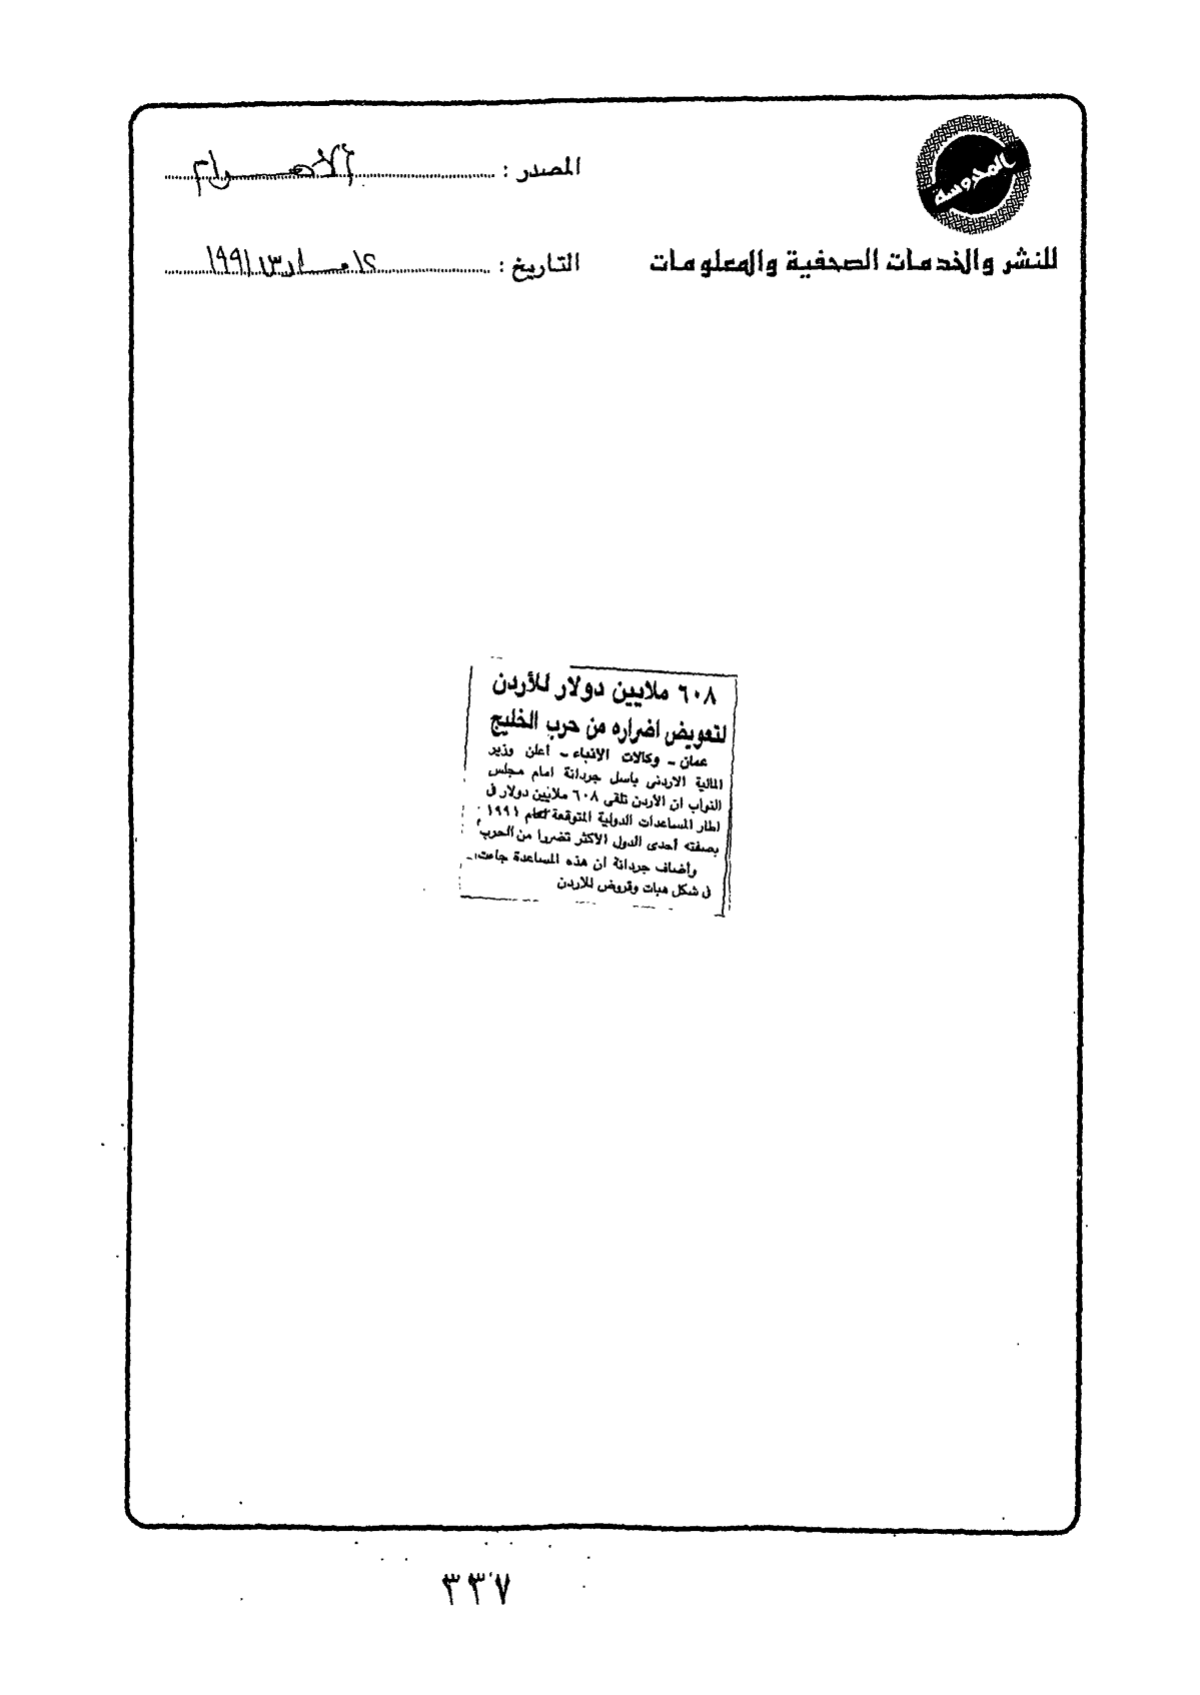 المحروسة
المصدر : الأهرام
للنشر والخدمات الصحفية والمعلومات
التاريخ : ١٢ مارس ١٩٩١
٦٠٨ ملايين دولار للأردن
لتعويض اضراره من حرب الخليج
عمان - وكالات الانباء - اعلن وزير
المالية الاردنى باسل جردانة امام مجلس
النواب ان الأردن تلقى ٦٠٨ ملايين دولار فى
اطار المساعدات الدولية المتوقعة لعام ١٩٩١
بصفته أحدى الدول الاكثر تضررا من الحرب
وأضاف جردانة ان هذه المساعدة جاءت
فى شكل هبات وقروض للاردن
٣٣٧